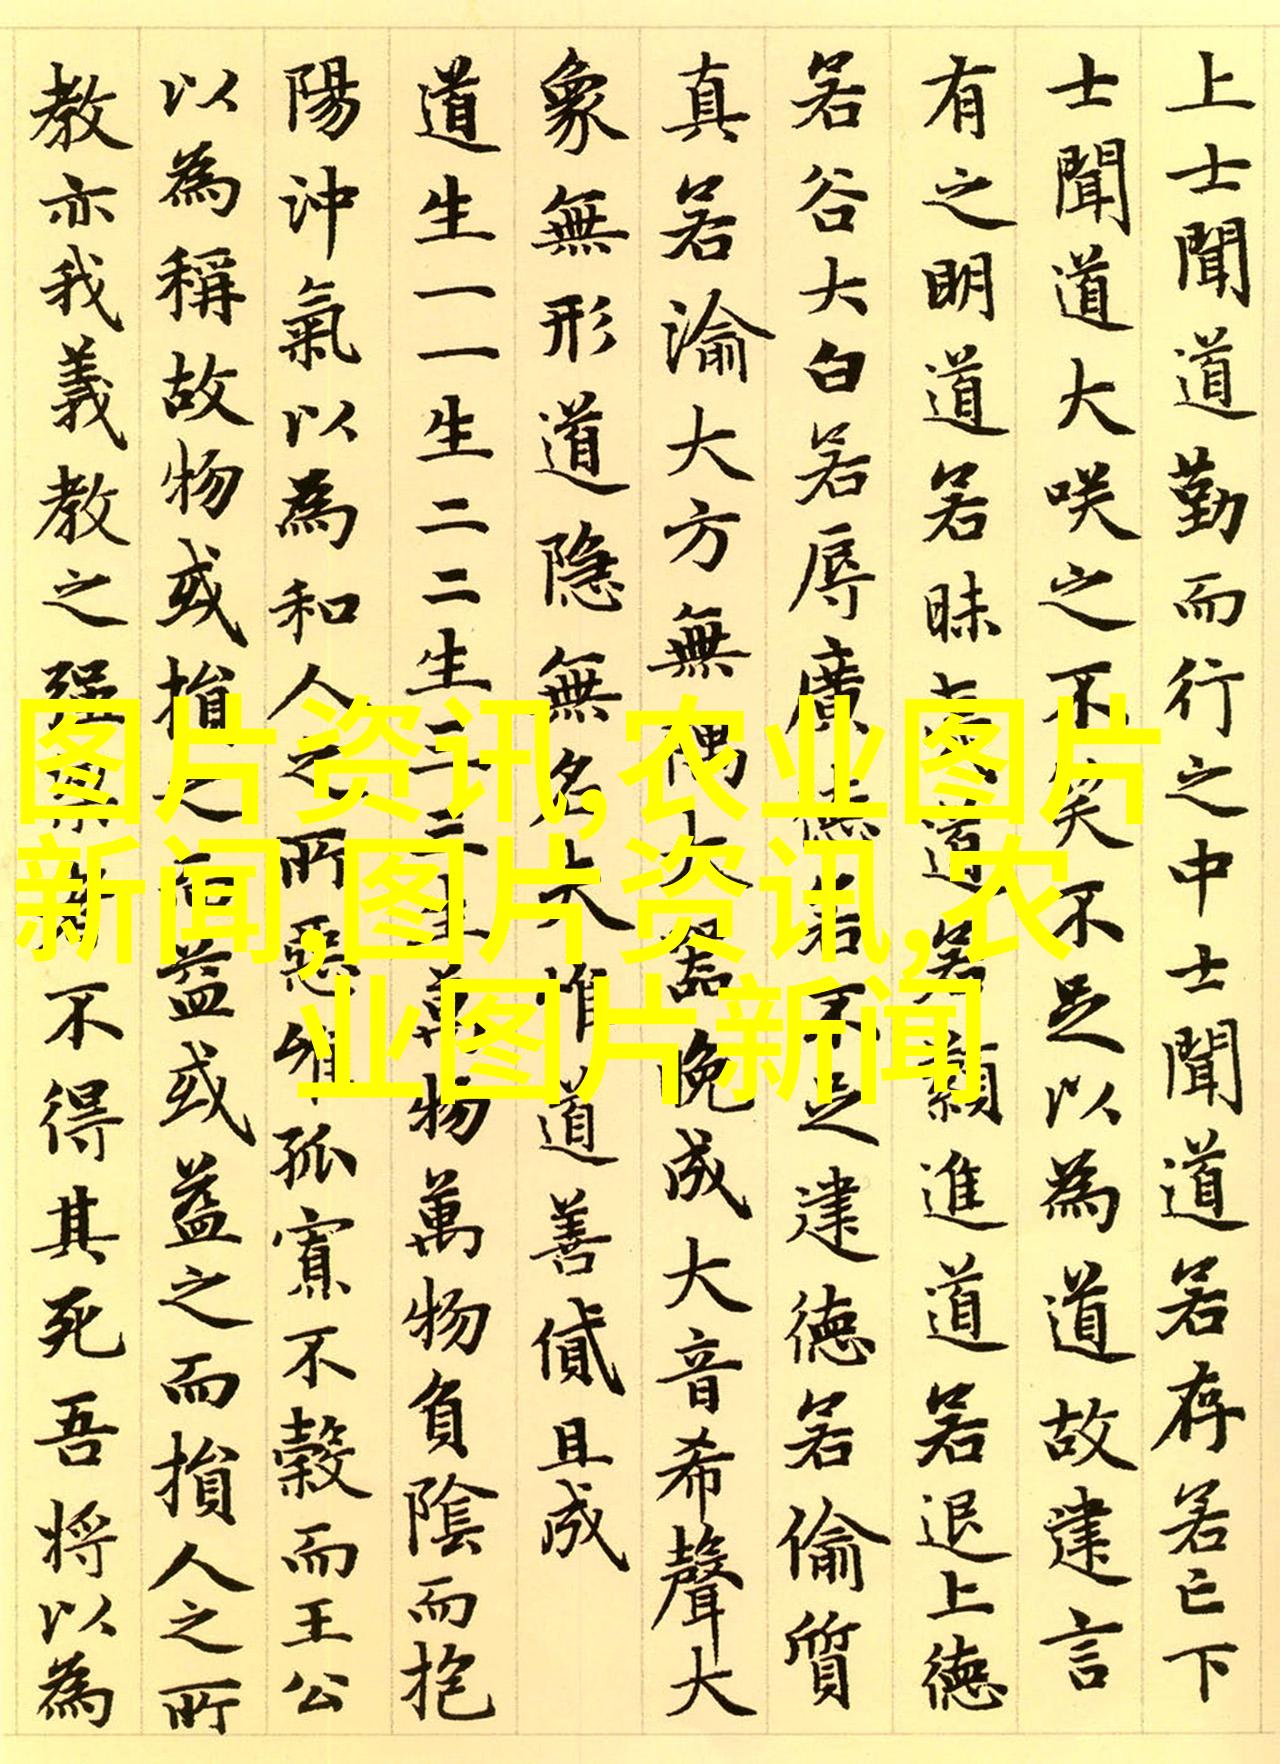 上士聞道勤而行之中士聞道若存若亡下
士聞道大咲之不笑不足以為道故建言
有之明道若昧夷道若纇進道若退上德
若谷大白若辱廣德若不足建德若偷質
真若渝大方無隅大器晚成大音希聲大
象無形道隐無名夫惟道善貸且成
道生一一生二二生三三生萬物萬物負陰而抱
陽沖氣以為和人之所惡唯孤寡不穀而王公
以為稱故物或損之而益或益之而損人之所
教亦我義教之强梁者不得其死吾将以為
图片资讯,农业图片
新闻,图片资讯,农
业图片新闻